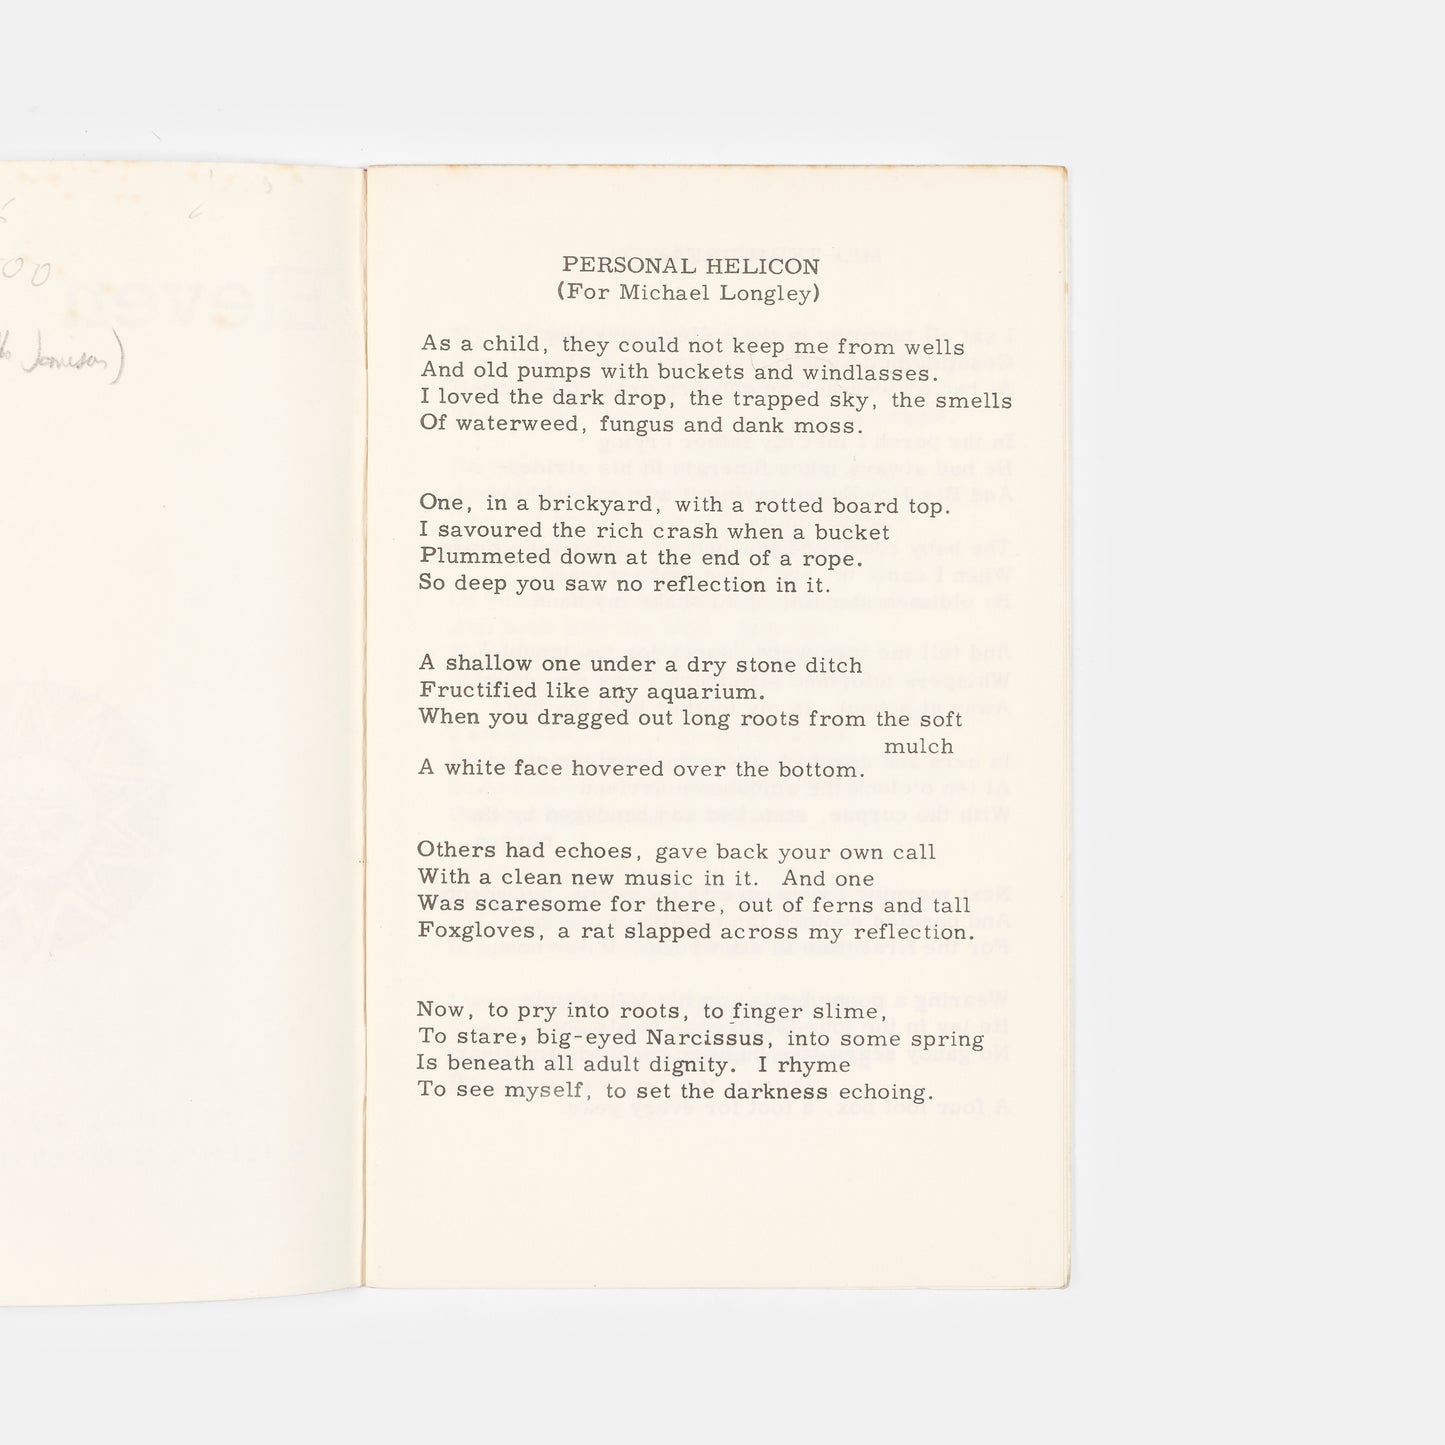 PERSONAL HELICON
(For Michael Longley)
As a child, they could not keep me from wells
And old pumps with buckets and windlasses.
I loved the dark drop, the trapped sky, the smells
Of waterweed, fungus and dank moss.
One, in a brickyard, with a rotted board top.
I savoured the rich crash when a bucket
Plummeted down at the end of a rope.
So deep you saw no reflection in it.
A shallow one under a dry stone ditch
Fructified like any aquarium.
When you dragged out long roots from the soft
mulch
A white face hovered over the bottom.
Others had echoes, gave back your own call
With a clean new music in it. And one
Was scaresome for there, out of ferns and tall
Foxgloves, a rat slapped across my reflection.
Now, to pry into roots, to finger slime,
To stare, big-eyed Narcissus, into some spring
Is beneath all adult dignity. I rhyme
To see myself, to set the darkness echoing.